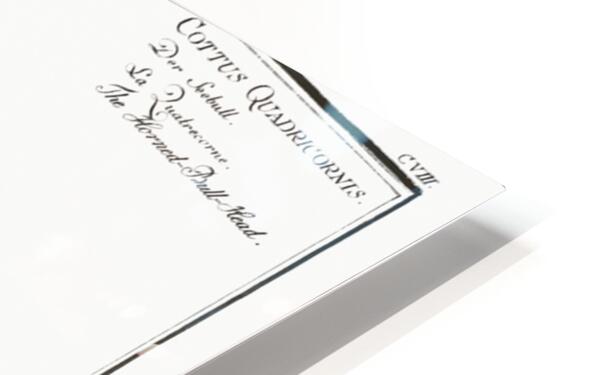 CVIII.
COTTUS QUADRICORNIS.
Der Seebull.
La Quatrecorne.
The Horned-Bull-Head.